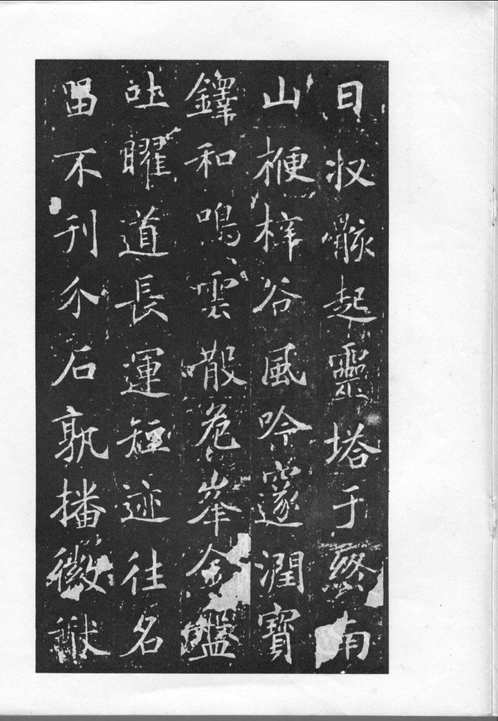 日收骸起靈塔于終南
山楩梓谷風吟邃澗寶
鐸和鳴雲散危峯金盤
吐曜道長運短迹往名
留不刊介石孰播徽猷